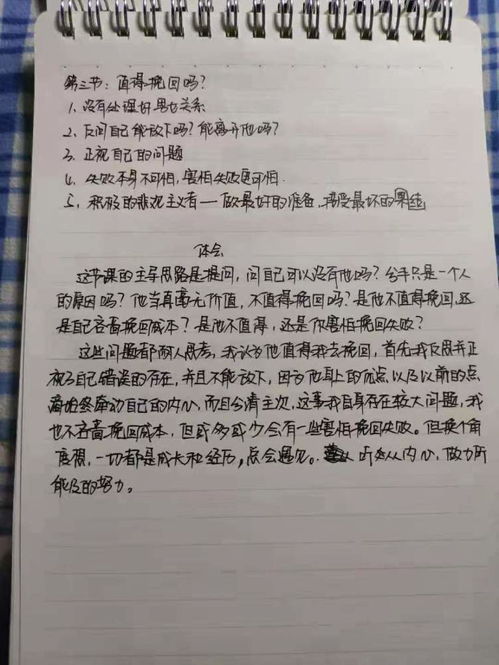 第三节：值得挽回吗？
1、没有处理好男女关系
2、反问自己能放下吗？能离开他吗？
3、正视自己的问题
4、失败本身不可怕，害怕失败更可怕.
5、积极的悲观主义者——做最好的准备，接受最坏的果结
体会
这节课的主导思路是提问，问自己可以没有他吗？分手只是一个人
的原因吗？他当真毫无价值，不值得挽回吗？是他不值得挽回，还
是自己吝啬挽回成本？是他不值得，还是你害怕挽回失败？
这些问题都耐人思考，我认为他值得我去挽回，首先我反思并正
视了自己错误的存在，并且不能放下，因为他身上的优点以及以前的点
滴始终牵动自己的内心，而且分清主次，这事我自身存在较大问题，我
也不吝啬挽回成本，但或多或少会有一些害怕挽回失败。但换个角
度想，一切都是成长和经历，总会遇见。听从内心，做力所
能及的努力。